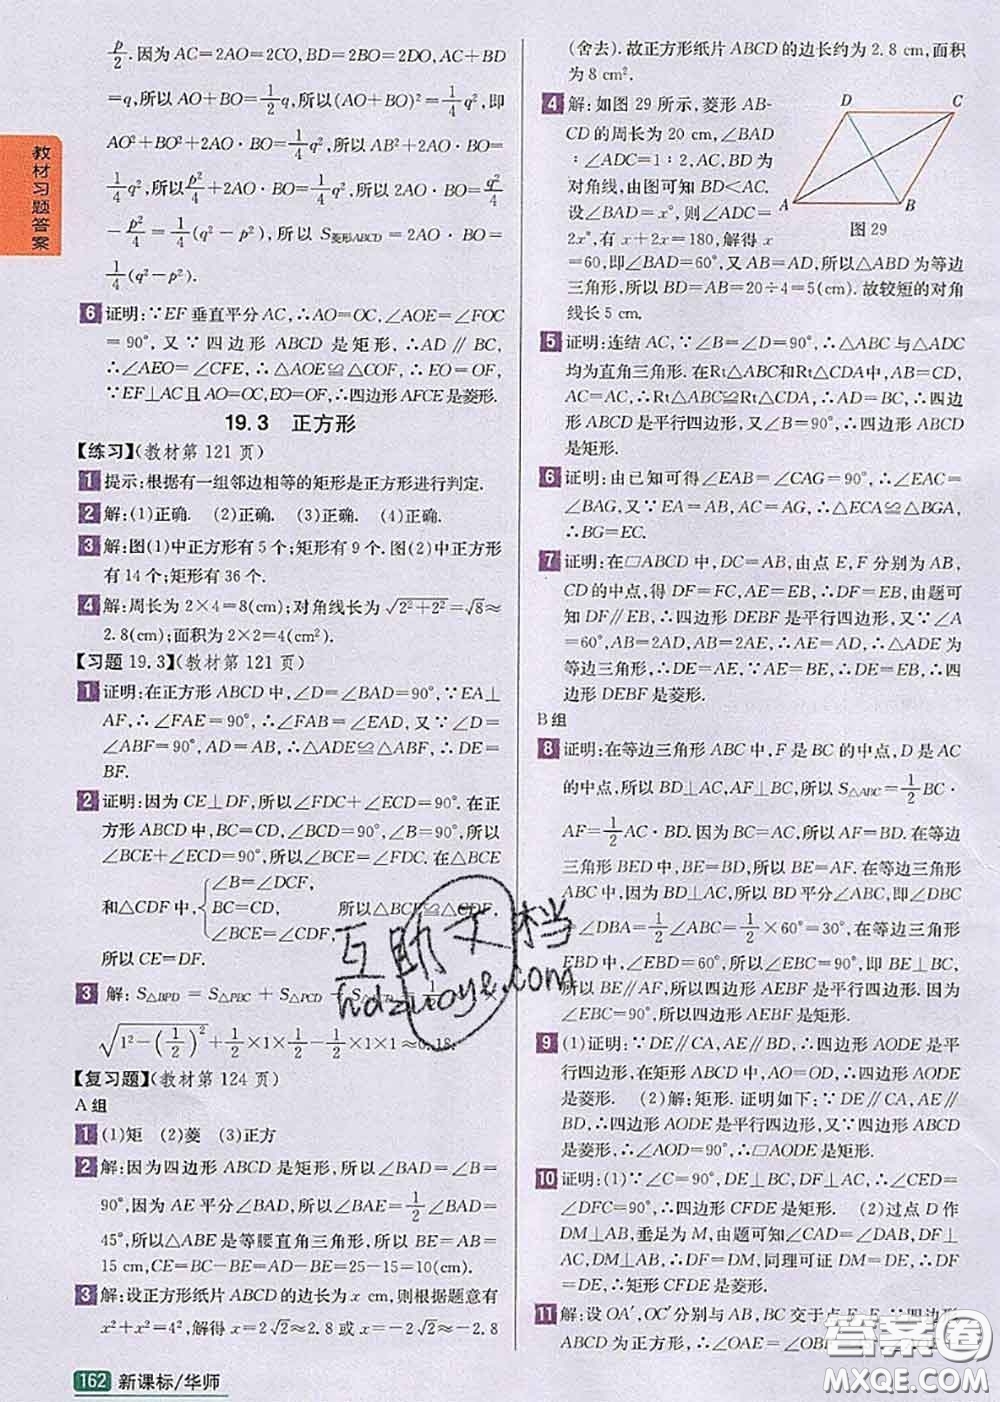 教材习题答案
p/2.因为AC=2AO=2CO,BD=2BO=2DO,AC+BD
=q,所以AO+BO=1/2q,所以(AO+BO)²=1/4q²,即
AO²+BO²+2AO·BO=1/4q²,所以AB²+2AO·BO=
1/4q²,所以p²/4+2AO·BO=1/4q²,所以2AO·BO=q²/4
-p²/4=1/4(q²-p²),所以S菱形ABCD=2AO·BO=
1/4(q²-p²).
6 证明:∵EF垂直平分AC,∴AO=OC,∠AOE=∠FOC
=90°,又∵四边形ABCD是矩形,∴AD∥BC,
∴∠AEO=∠CFE,∴△AOE≌△COF,∴EO=OF,
∵EF⊥AC且AO=OC,EO=OF,∴四边形AFCE是菱形.
19.3 正方形
【练习】(教材第121页)
1 提示:根据有一组邻边相等的矩形是正方形进行判定.
2 解:(1)正确. (2)正确. (3)正确. (4)正确.
3 解:图(1)中正方形有5个;矩形有9个.图(2)中正方形
有14个;矩形有36个.
4 解:周长为2×4=8(cm);对角线长为√(2²+2²)=√8≈
2.8(cm);面积为2×2=4(cm²).
【习题19.3】(教材第121页)
1 证明:在正方形ABCD中,∠D=∠BAD=90°,∵EA⊥
AF,∴∠FAE=90°,∴∠FAB=∠EAD,又∵∠D=
∠ABF=90°,AD=AB,∴△ADE≌△ABF,∴DE=
BF.
2 证明:因为CE⊥DF,所以∠FDC+∠ECD=90°.在正
方形ABCD中,BC=CD,∠BCD=90°,∠B=90°,所以
∠BCE+∠ECD=90°,所以∠BCE=∠FDC.在△BCE
和△CDF中,{∠B=∠DCF,
BC=CD,
∠BCE=∠CDF, 所以△BCE≌△CDF,
所以CE=DF.
3 解:S△BPD=S△PBC+S△PCD-
√(1²-(1/2)²)+1/2×1×1/2-1/2×1×1≈0.18.
【复习题】(教材第124页)
A组
1 (1)矩 (2)菱 (3)正方
2 解:因为四边形ABCD是矩形,所以∠BAD=∠B=
90°,因为AE平分∠BAD,所以∠BAE=1/2∠BAD=
45°,所以△ABE是等腰直角三角形,所以BE=AB=
15 cm,CE=BC-BE=25-15=10(cm).
3 解:设正方形纸片ABCD的边长为x cm,则根据题意有
x²+x²=4²,解得x=2√2≈2.8或x=-2√2≈-2.8
162 新课标/华师
(舍去).故正方形纸片ABCD的边长约为2.8 cm,面积
为8 cm².
4 解:如图29所示,菱形AB-
CD的周长为20 cm,∠BAD
:∠ADC=1:2,AC,BD为
对角线,由图可知BD<AC.
设∠BAD=x°,则∠ADC=
2x°,有x+2x=180,解得x
=60,即∠BAD=60°,又AB=AD,所以△ABD为等边
三角形,所以BD=AB=20÷4=5(cm).故较短的对角
线长5 cm.
D
C
A
B
图29
5 证明:连结AC,∵∠B=∠D=90°,∴△ABC与△ADC
均为直角三角形.在Rt△ABC和Rt△CDA中,AB=CD,
AC=AC,∴Rt△ABC≌Rt△CDA,∴BC=AD,∴四边形
ABCD是平行四边形,又∵∠B=90°,∴四边形ABCD
是矩形.
6 证明:由已知可得∠EAB=∠CAG=90°,∴∠EAC=
∠BAG,又∵EA=AB,AC=AG,∴△EAC≌△BGA,
∴BG=EC.
7 证明:在□ABCD中,DC=AB,由点E,F分别为AB,
CD的中点,得DF=FC=EB=AE,∴DF=EB,由题可
知DF∥EB,∴四边形DEBF是平行四边形,又∵∠A
=60°,AB=2AD,AB=2AE,∴AE=AD,∴△ADE为
等边三角形,∴DE=AE,∵AE=EB,∴DE=EB,∴四
边形DEBF是菱形.
B组
8 证明:在等边三角形ABC中,F是BC的中点,D是AC
的中点,所以BD⊥AC,AF⊥BC,所以S△ABC=1/2BC·
AF=1/2AC·BD.因为BC=AC,所以AF=BD.在等边三
角形BED中,BE=BD,所以BE=AF.在等边三角形
ABC中,因为D是AC的中点,所以BD平分∠ABC,即∠DBC
=∠DBA=1/2∠ABC=1/2×60°=30°,在等边三角形
EBD中,∠EBD=60°,所以∠EBC=90°,即BE⊥BC,所以
BE∥AF,所以四边形AEBF是平行四边形.因为
∠EBC=90°,所以四边形AEBF是矩形.
9 (1)证明:∵DE∥CA,AE∥BD,∴四边形AODE是平
行四边形,在矩形ABCD中,AO=OD,∴四边形AODE
是菱形. (2)解:矩形.证明如下:∵DE∥CA,AE∥BD,
∴四边形AODE是平行四边形,又∵四边形ABCD是菱
形,∴∠AOD=90°,∴□AODE是矩形.
10 证明:(1)∵∠C=90°,DE⊥BC,DF⊥AC,∴∠CED=
∠DFC=90°,∴四边形CFDE是矩形. (2)过点D作
DM⊥AB,垂足为M,由题可知∠CAD=∠DAB,DF⊥
AC,DM⊥AB,∴DF=DM,同理可证DM=DE,∴DF
=DE,∴矩形CFDE是菱形.
11 解:设OA′,OC′分别与AB,BC交于点E,F,∵四边形
ABCD为正方形,∴∠OAE=∠OBF
互助文档
hdzuoye.com
答案圈
MXQE.COM